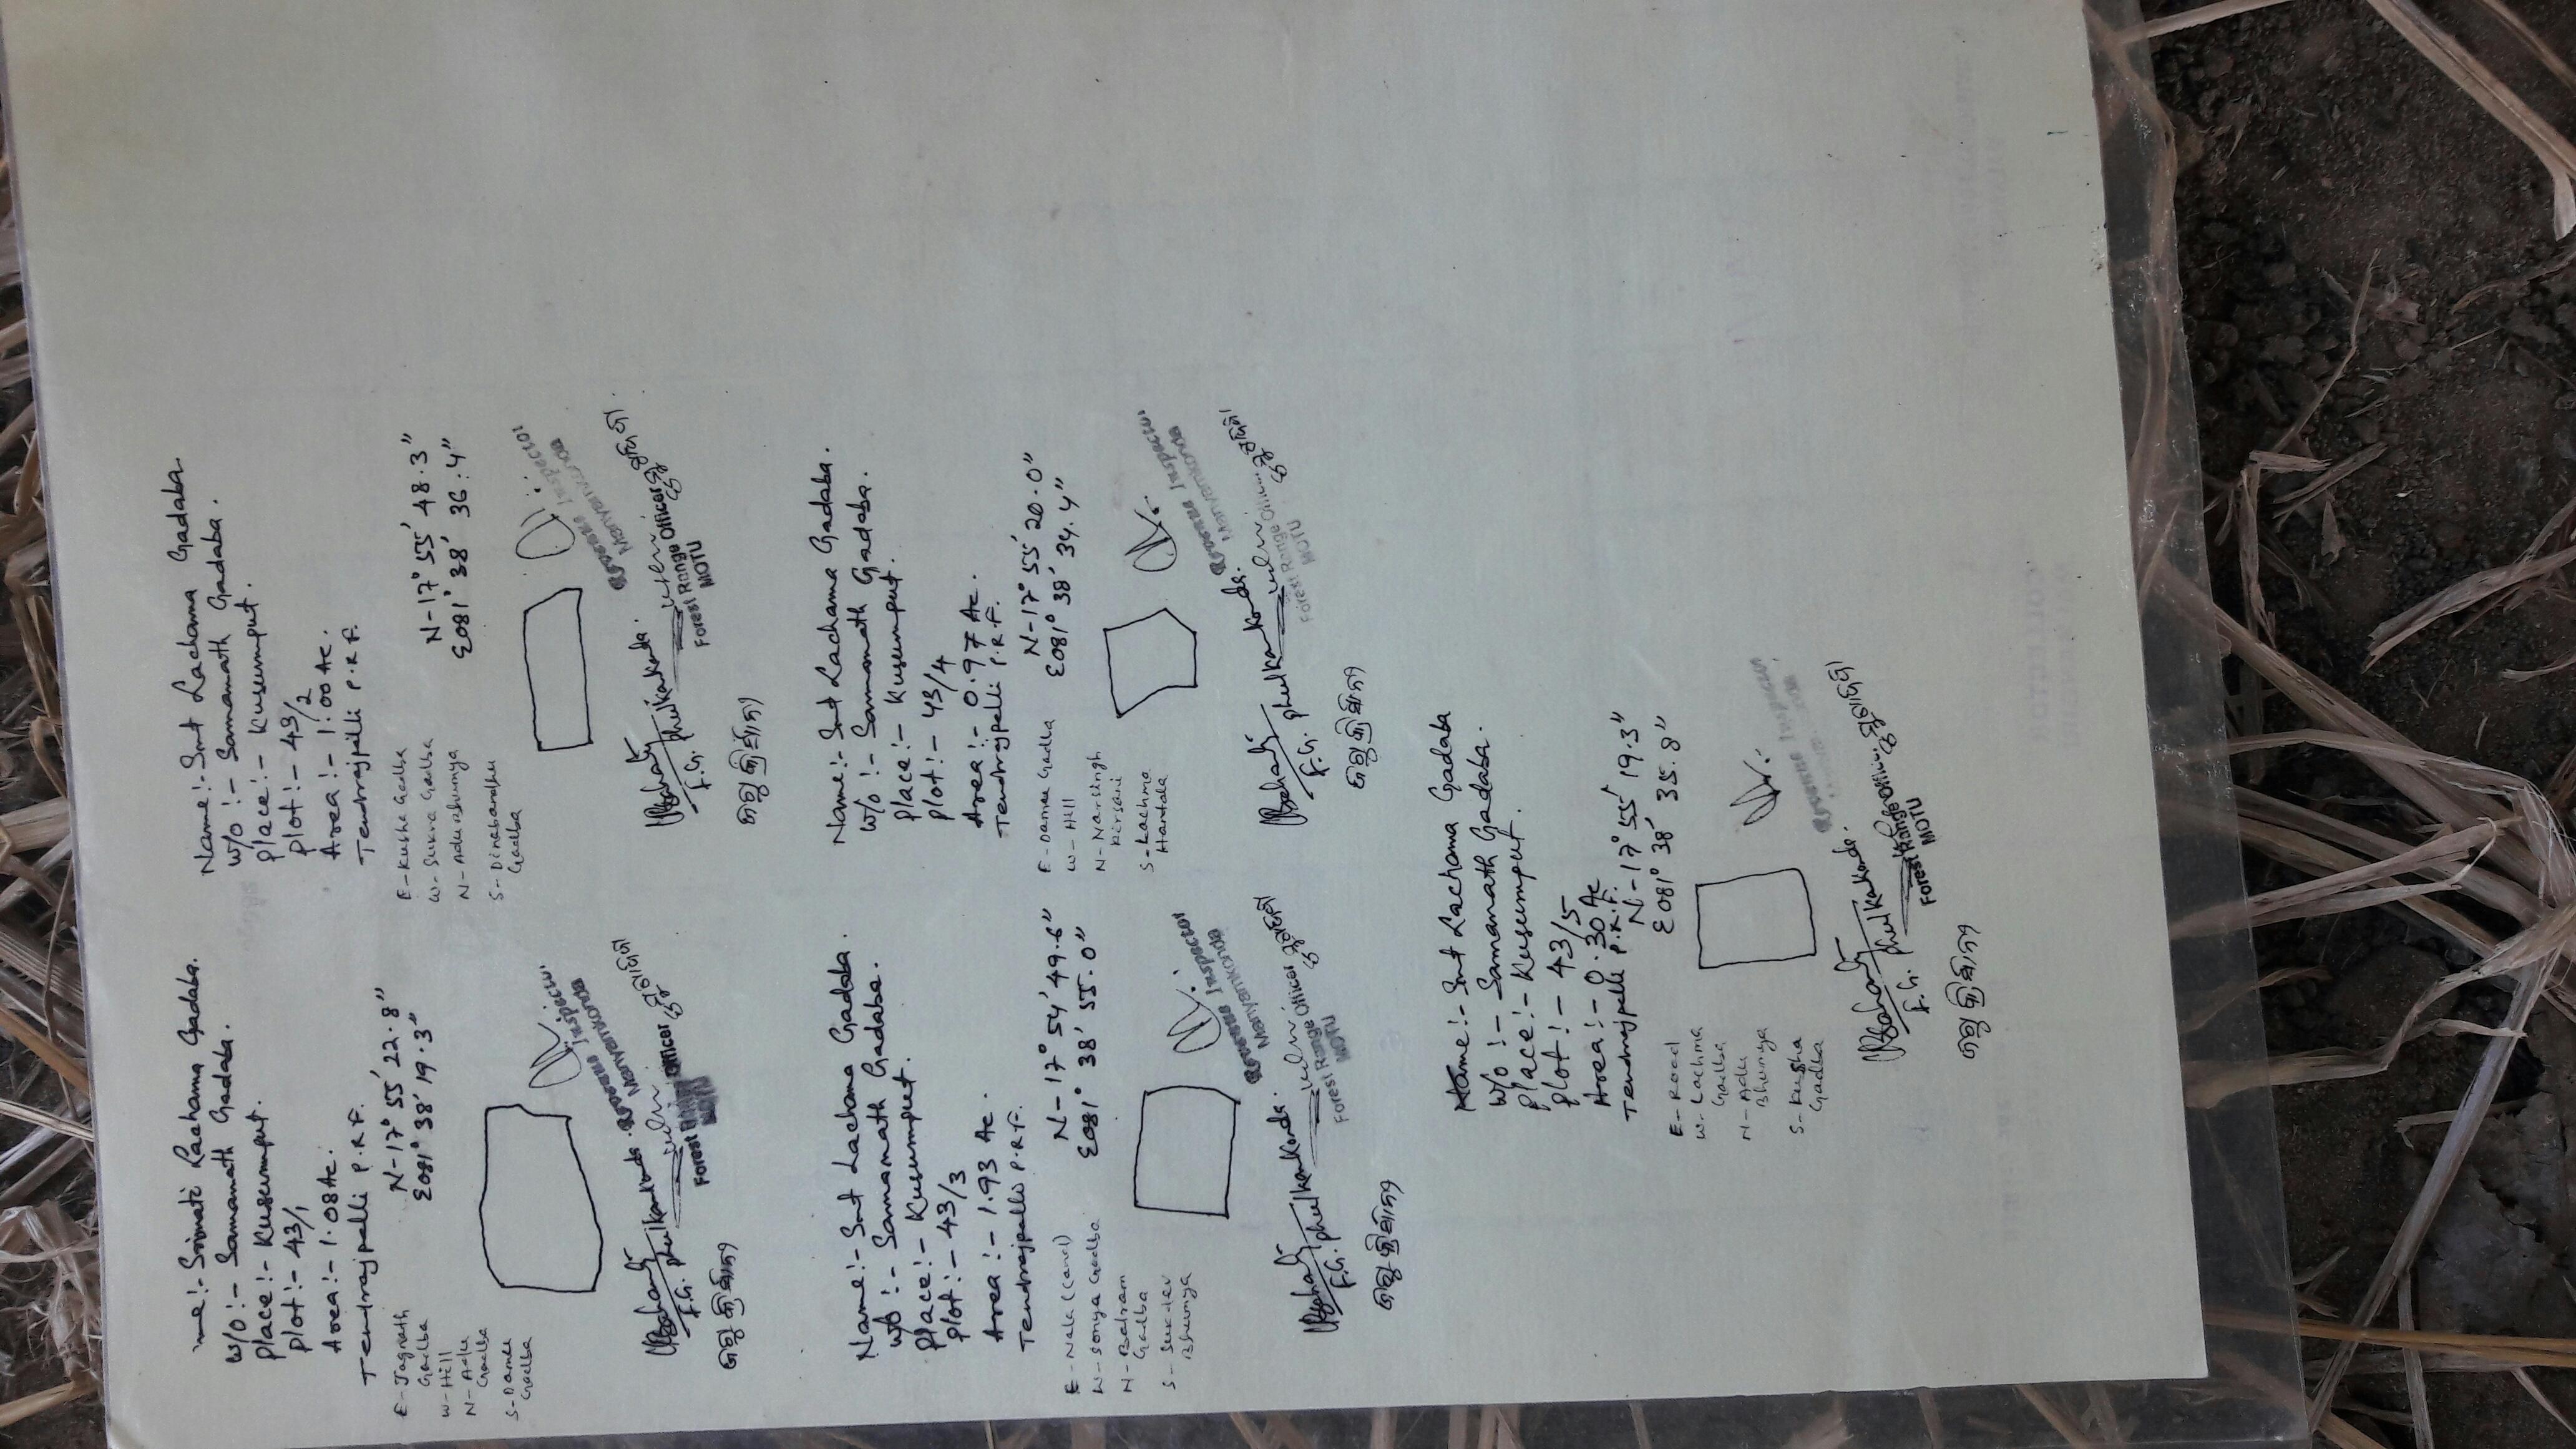 Name:- Srimati Lachama Gadaba.
W/o :- Samanath Gadaba.
Place:- Kusumput.
Plot:- 43/1
Area:- 1.08 Ac.
Tendrajpelli P.R.F.
N-17° 55' 22.8"
E081° 38' 19.3"
E-Jagnath
Gadba
W-Hill
N-Adu
Gadba
S-Dame
Gadba
Revenue Inspector
Manyamkonda
F.G. Phulkankonda.
Forest Range Officer
MOTU
Name:- Smt Lachama Gadaba
W/o :- Samanath Gadaba.
Place:- Kusumput.
Plot:- 43/2
Area:- 1.00 Ac.
Tendrajpelli P.R.F.
N-17° 55' 48.3"
E081° 38' 36.4"
E-Kusha Gadba
W-Sukra Gadba
N-Adu Bhumya
S-Dinabandhu
Gadba
Revenue Inspector
Manyamkonda
F.G. Phulkankonda.
Forest Range Officer
MOTU
Name:- Smt Lachama Gadaba.
W/o :- Samanath Gadaba.
Place:- Kusumput.
Plot:- 43/3
Area:- 1.93 Ac.
Tendrajpelli P.R.F.
N-17° 54' 49.6"
E081° 38' 55.0"
E-Nala (Canel)
W-Sonya Gadba
N-Balram
Gadba
S-Sukdev
Bhumya
Revenue Inspector
Manyamkonda
F.G. Phulkankonda.
Forest Range Officer
MOTU
Name:- Smt Lachama Gadaba.
W/o :- Samanath Gadaba.
Place:- Kusumput.
Plot:- 43/4
Area:- 0.97 Ac.
Tendrajpelli P.R.F.
N-17° 55' 20.0"
E081° 38' 34.4"
E-Dame Gadba
W-Hill
N-Narsingh
Kirsani
S-Lachma
Hantala
Revenue Inspector
Manyamkonda
F.G. Phulkankonda.
Forest Range Officer
MOTU
Name:- Smt Lachama Gadaba
W/o :- Samanath Gadaba.
Place:- Kusumput.
Plot:- 43/5
Area:- 0.30 Ac
Tendrajpelli P.R.F.
N-17° 55' 19.3"
E081° 38' 35.8"
E-Road
W-Lachma
Gadba
N-Adu
Bhumya
S-Kusha
Gadba
Revenue Inspector
F.G. Phulkankonda.
Forest Range Officer
MOTU